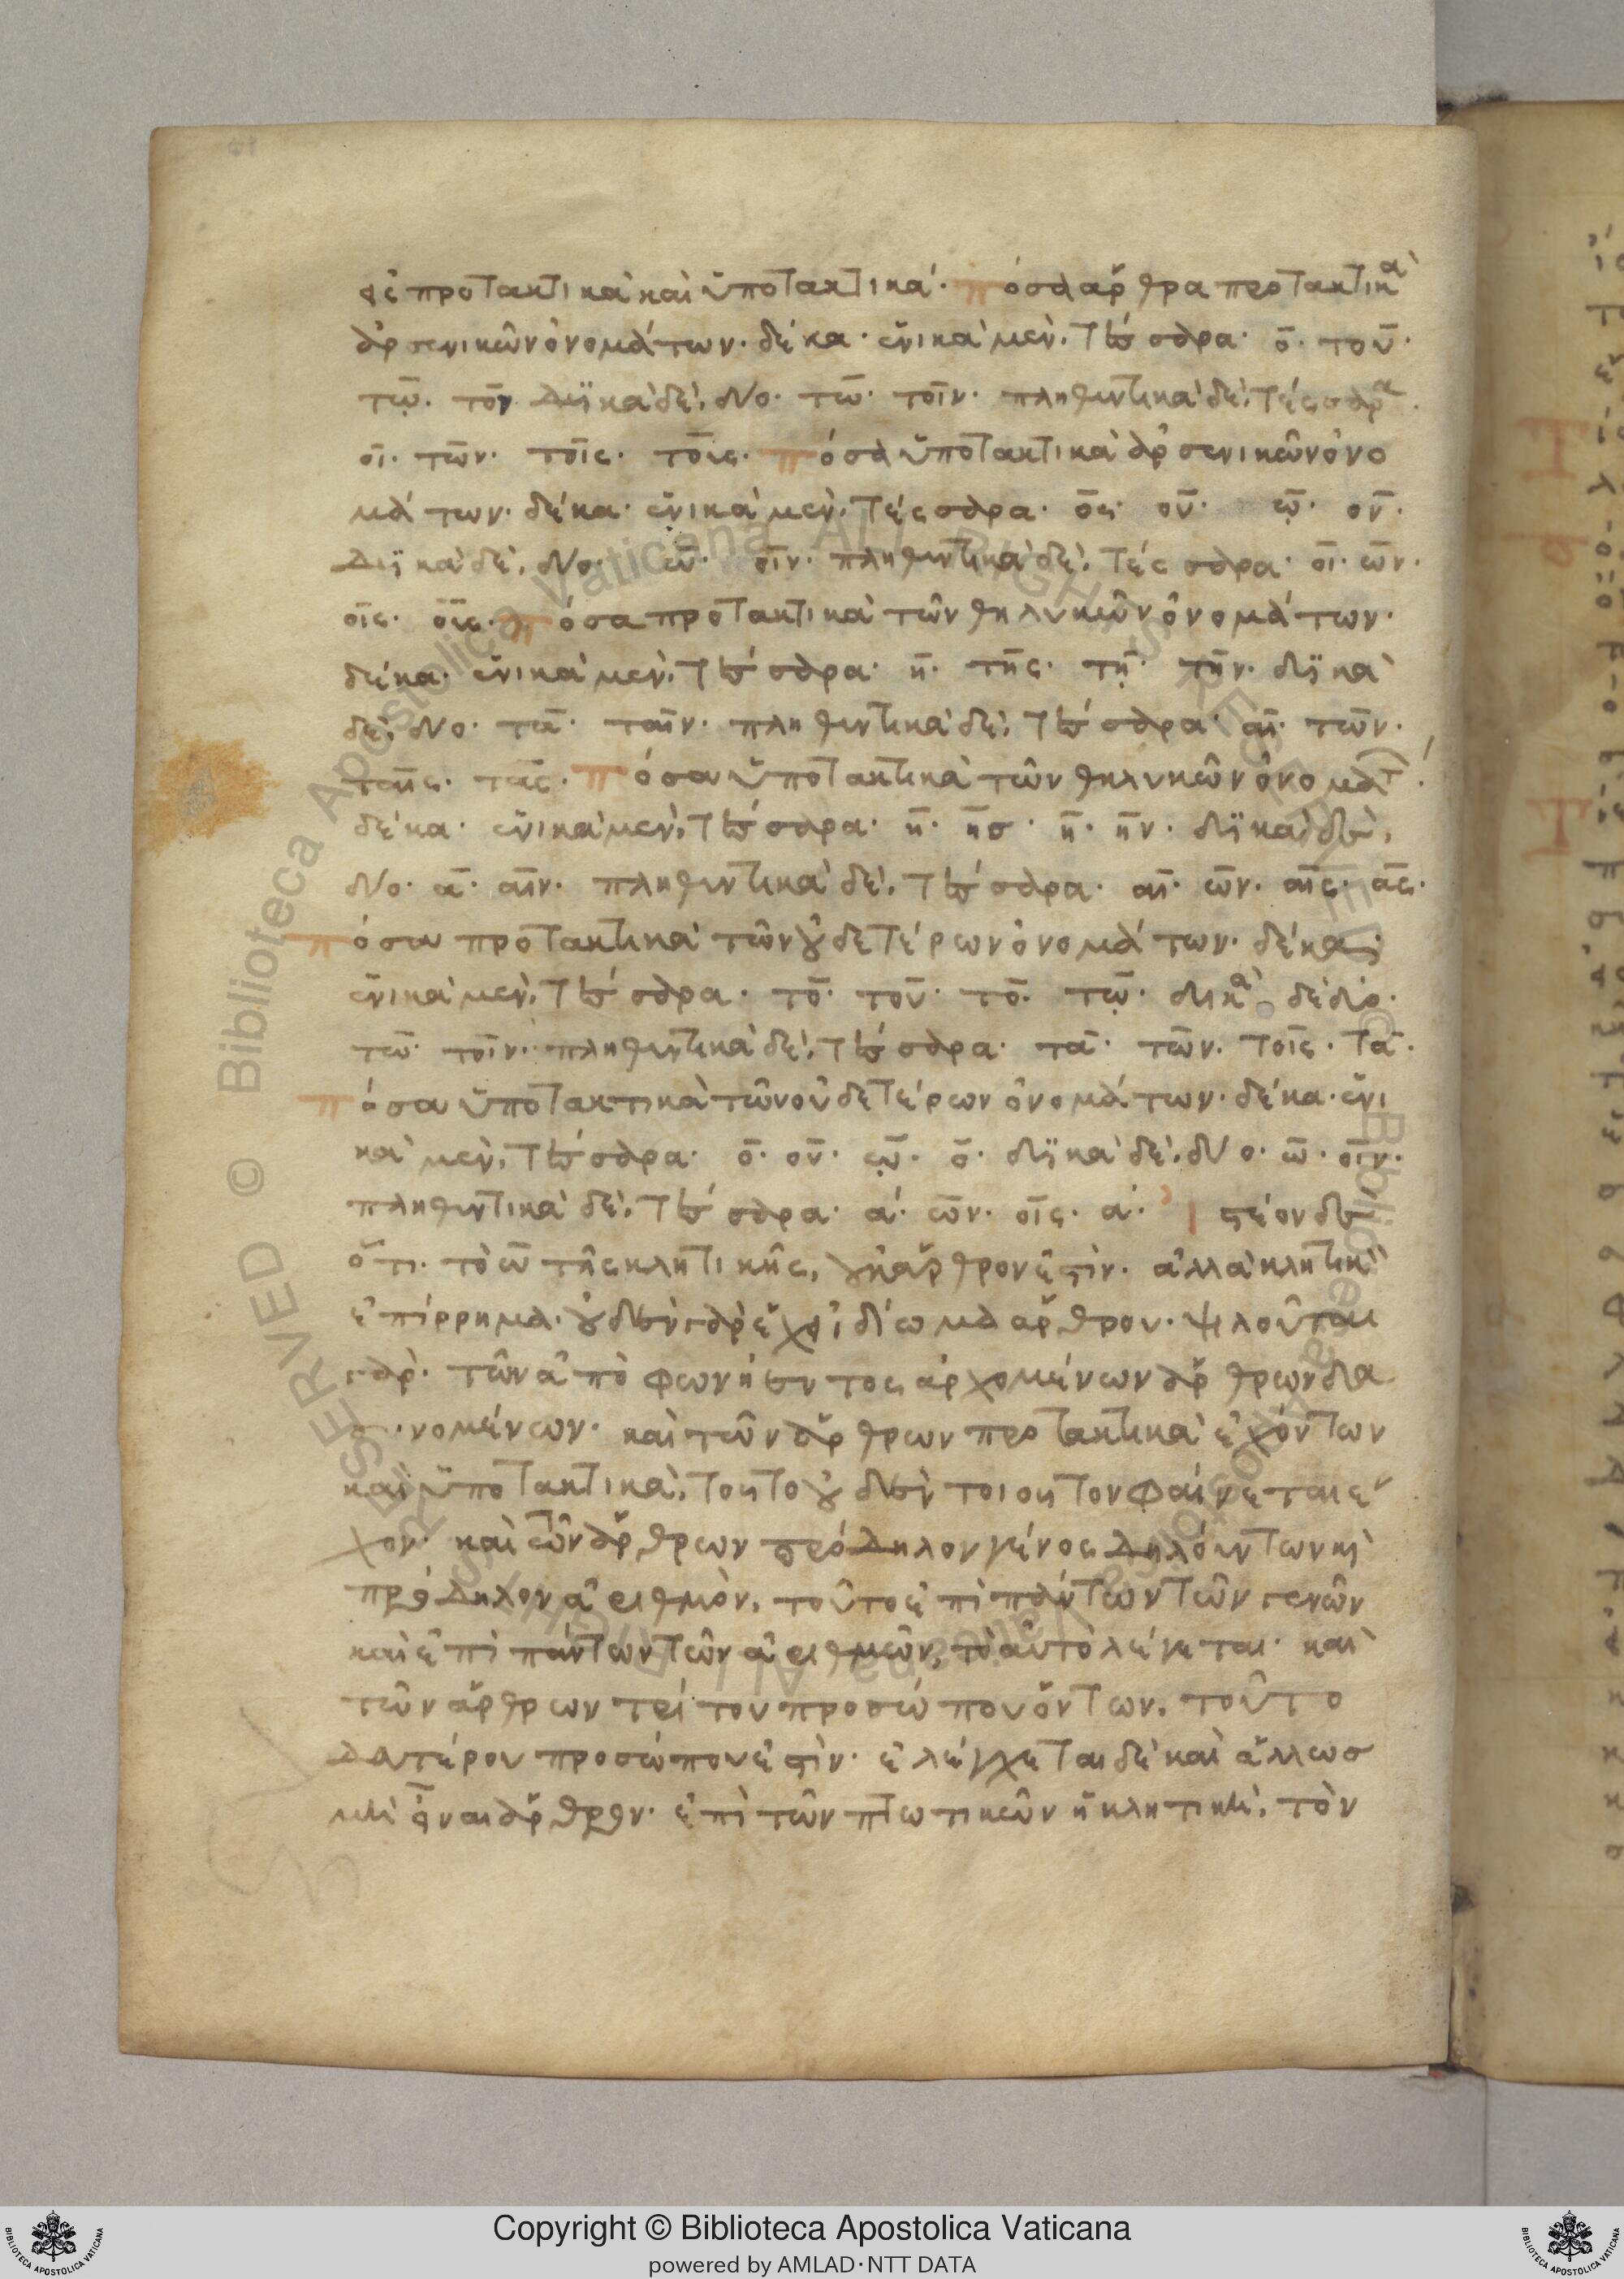 σὲ προτακτικὰ καὶ ὑποτακτικά· πόσα ἄρθρα προτακτικὰ
ἀρσενικῶν ὀνομάτων· δέκα· ἑνικὰ μὲν, τέσσαρα· ὁ· τοῦ·
τῷ· τὸν· δυϊκὰ δὲ, δύο· τὼ· τοῖν· πληθυντικὰ δὲ, τέσσαρα·
οἱ· τῶν· τοῖς· τοὺς· πόσα ὑποτακτικὰ ἀρσενικῶν ὀνο
μάτων· δέκα· ἑνικὰ μὲν, τέσσαρα· ὅς· οὗ· ᾧ· ὅν·
δυϊκὰ δὲ, δύο· ὥ· οἷν· πληθυντικὰ δὲ, τέσσαρα· οἵ· ὧν·
οἷς· οὕς· πόσα προτακτικὰ τῶν θηλυκῶν ὀνομάτων·
δέκα· ἑνικὰ μὲν, τέσσαρα· ἡ· τῆς· τῇ· τὴν· δυϊκὰ
δὲ, δύο· τὰ· ταῖν· πληθυντικὰ δὲ, τέσσαρα· αἱ· τῶν·
ταῖς· τὰς· πόσα ὑποτακτικὰ τῶν θηλυκῶν ὀνομάτ·
δέκα· ἑνικὰ μὲν, τέσσαρα· ἥ· ἧσ· ᾗ· ἥν· δυϊκὰ δὲ,
δύο· ἅ· αἷν· πληθυντικὰ δὲ, τέσσαρα· αἵ· ὧν· αἷς· ἅς·
πόσα προτακτικὰ τῶν οὐδετέρων ὀνομάτων· δέκα·
ἑνικὰ μὲν, τέσσαρα· τὸ· τοῦ· τὸ· τῷ· δυικὰ δὲ δύο·
τὼ· τοῖν· πληθυντικὰ δὲ, τέσσαρα· τὰ· τῶν· τοῖς· τὰ·
πόσα ὑποτακτικὰ τῶν οὐδετέρων ὀνομάτων· δέκα· ἑνι
κὰ μὲν, τέσσαρα· ὅ· οὗ· ᾧ· ὅ· δυϊκὰ δὲ, δύο· ὥ· οἷν·
πληθυντικὰ δὲ, τέσσαρα· ἅ· ὧν· οἷς· ἅ· ἰστέον δὲ
ὅτι τὸ ὦ τῆς κλητικῆς, οὐκ ἄρθρον ἐστὶν· ἀλλὰ κλητικὸν
ἐπίρρημα· οὐδὲν γὰρ ἔχει ἰδίωμα ἄρθρου· ψιλοῦται
γὰρ· τῶν ἀπὸ φωνήεντος ἀρχομένων ἄρθρων δα
συνομένων· καὶ τῶν ἄρθρων προτακτικὰ ἐχόντων
καὶ ὑποτακτικὰ, τοῦτο οὐδὲν τοιοῦτον φαίνεται ἔ
χον· καὶ τῶν ἄρθρων πρόδηλον γένος δηλούντων καὶ
πρόδηλον ἀριθμὸν, τοῦτο ἐπὶ πάντων τῶν γενῶν
καὶ ἐπὶ πάντων τῶν ἀριθμῶν, τὸ αὐτὸ λέγεται· καὶ
τῶν ἄρθρων τρίτου προσώπου ὄντων, τοῦτο
δευτέρου προσώπου ἐστὶν· ἐλέγχεται δὲ καὶ ἄλλωσ
μὴ εἶναι ἄρθρον· ἐπὶ τῶν πτωτικῶν ἡ κλητικὴ, τὸν
Copyright © Biblioteca Apostolica Vaticana
powered by AMLAD·NTT DATA